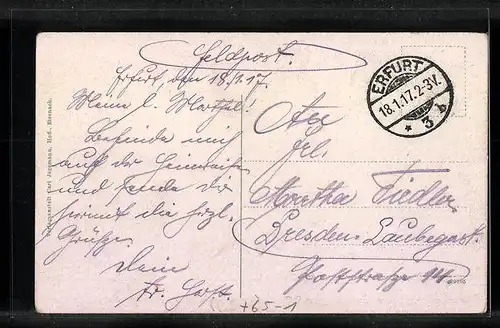 Feldpost.
Erfurt, den 18.1.17.
Meine l. Martha!
Befinde mich
auf der Heimreise
und sende Dir
hiermit die herzl.
Grüße
Dein
Fr.
An
Frl.
Martha Fiedler
Dresden-Laubegast
Poststraße 14
ERFURT
18.1.17.2-3V.
* 3 b
+65-1